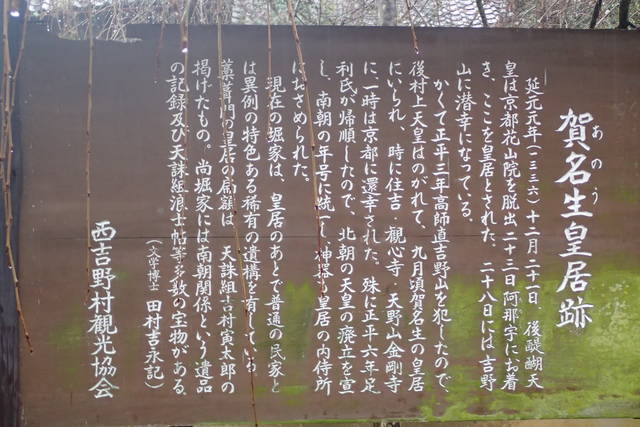 賀名生皇居跡
あのう
延元元年(一三三六)十二月二十一日、後醍醐天
皇は京都花山院を脱出二十三日阿那宇にお着
き、ここを皇居とされた。二十八日には吉野
山に潜幸になっている。
かくて正平三年高師直吉野山を犯したので
後村上天皇はのがれて、九月頃賀名生の皇居
にいられ、時に住吉・観心寺・天野山金剛寺
に、一時は京都に還幸された。殊に正平六年足
利氏が帰順したので、北朝の天皇の廃立を宣
し、南朝の年号に統一し、神器も皇居の内侍所
におさめられた。
現在の堀家は、皇居のあとで普通の民家と
は異例の特色ある稀有の遺構を有している。
藁葺門の皇居の扁額は、天誅組吉村寅太郎の
掲げたもの。尚堀家には南朝関係という遺品
の記録及び天誅組浪士帖等多数の宝物がある。
(文学博士 田村吉永記)
西吉野村観光協会